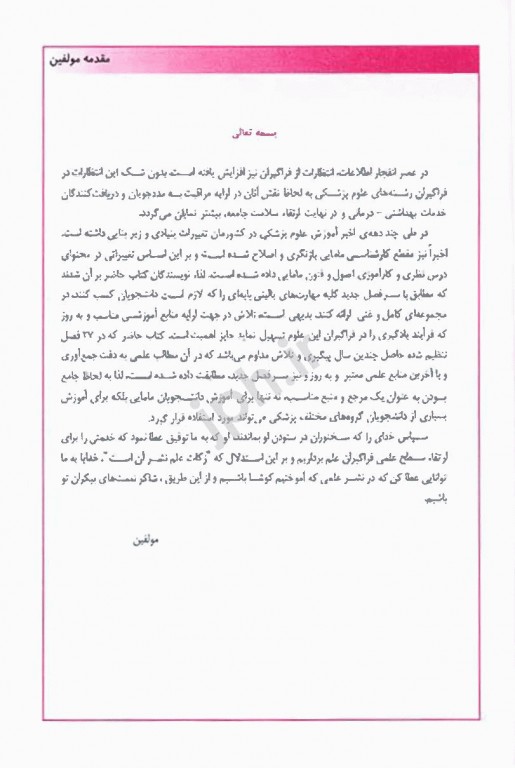 مقدمه مولفین
بسمه تعالی
در عصر انفجار اطلاعات، انتظارات از فراگیران نیز افزایش یافته است. بدون شک این انتظارات در
فراگیران رشته‌های علوم پزشکی به لحاظ نقش آنان در ارایه مراقبت به مددجویان و دریافت‌کنندگان
خدمات بهداشتی - درمانی و در نهایت ارتقاء سلامت جامعه، بیشتر نمایان می‌گردد.
در طی چند دهه‌ی اخیر آموزش علوم پزشکی در کشورمان تغییرات بنیادی و زیر بنایی داشته است.
اخیراً نیز مقطع کارشناسی مامایی بازنگری و اصلاح شده است و بر این اساس تغییراتی در محتوای
درس نظری و کارآموزی اصول و فنون مامایی داده شده است. لذا، نویسندگان کتاب حاضر بر آن شدند
که مطابق با سرفصل جدید کلیه مهارت‌های بالینی پایه‌ای را که لازم است دانشجویان کسب کنند، در
مجموعه‌ای کامل و غنی ارائه کنند. بدیهی است، تلاش در جهت ارایه منابع آموزشی مناسب و به روز
که فرآیند یادگیری را در فراگیران این علوم تسهیل نماید حایز اهمیت است. کتاب حاضر که در ۲۷ فصل
تنظیم شده حاصل چندین سال پیگیری و تلاش مداوم می‌باشد که در آن مطالب علمی به دقت جمع‌آوری
و با آخرین منابع علمی معتبر و به روز و نیز سرفصل جدید، مطابقت داده شده است. لذا به لحاظ جامع
بودن به عنوان یک مرجع و منبع مناسب، نه تنها برای آموزش دانشجویان مامایی بلکه برای آموزش
بسیاری از دانشجویان گروه‌های مختلف پزشکی می‌تواند مورد استفاده قرار گیرد.
سپاس خدای را که سخنوران در ستودن او بمانند، او که به ما توفیق عطا نمود که خدمتی را برای
ارتقاء سطح علمی فراگیران علم برداریم و بر این استدلال که "زکات علم نشر آن است". خدایا به ما
توانایی عطا کن که در نشر علمی که آموختیم کوشا باشیم و از این طریق ، شاکر نعمت‌های بیکران تو
باشیم.
مولفین